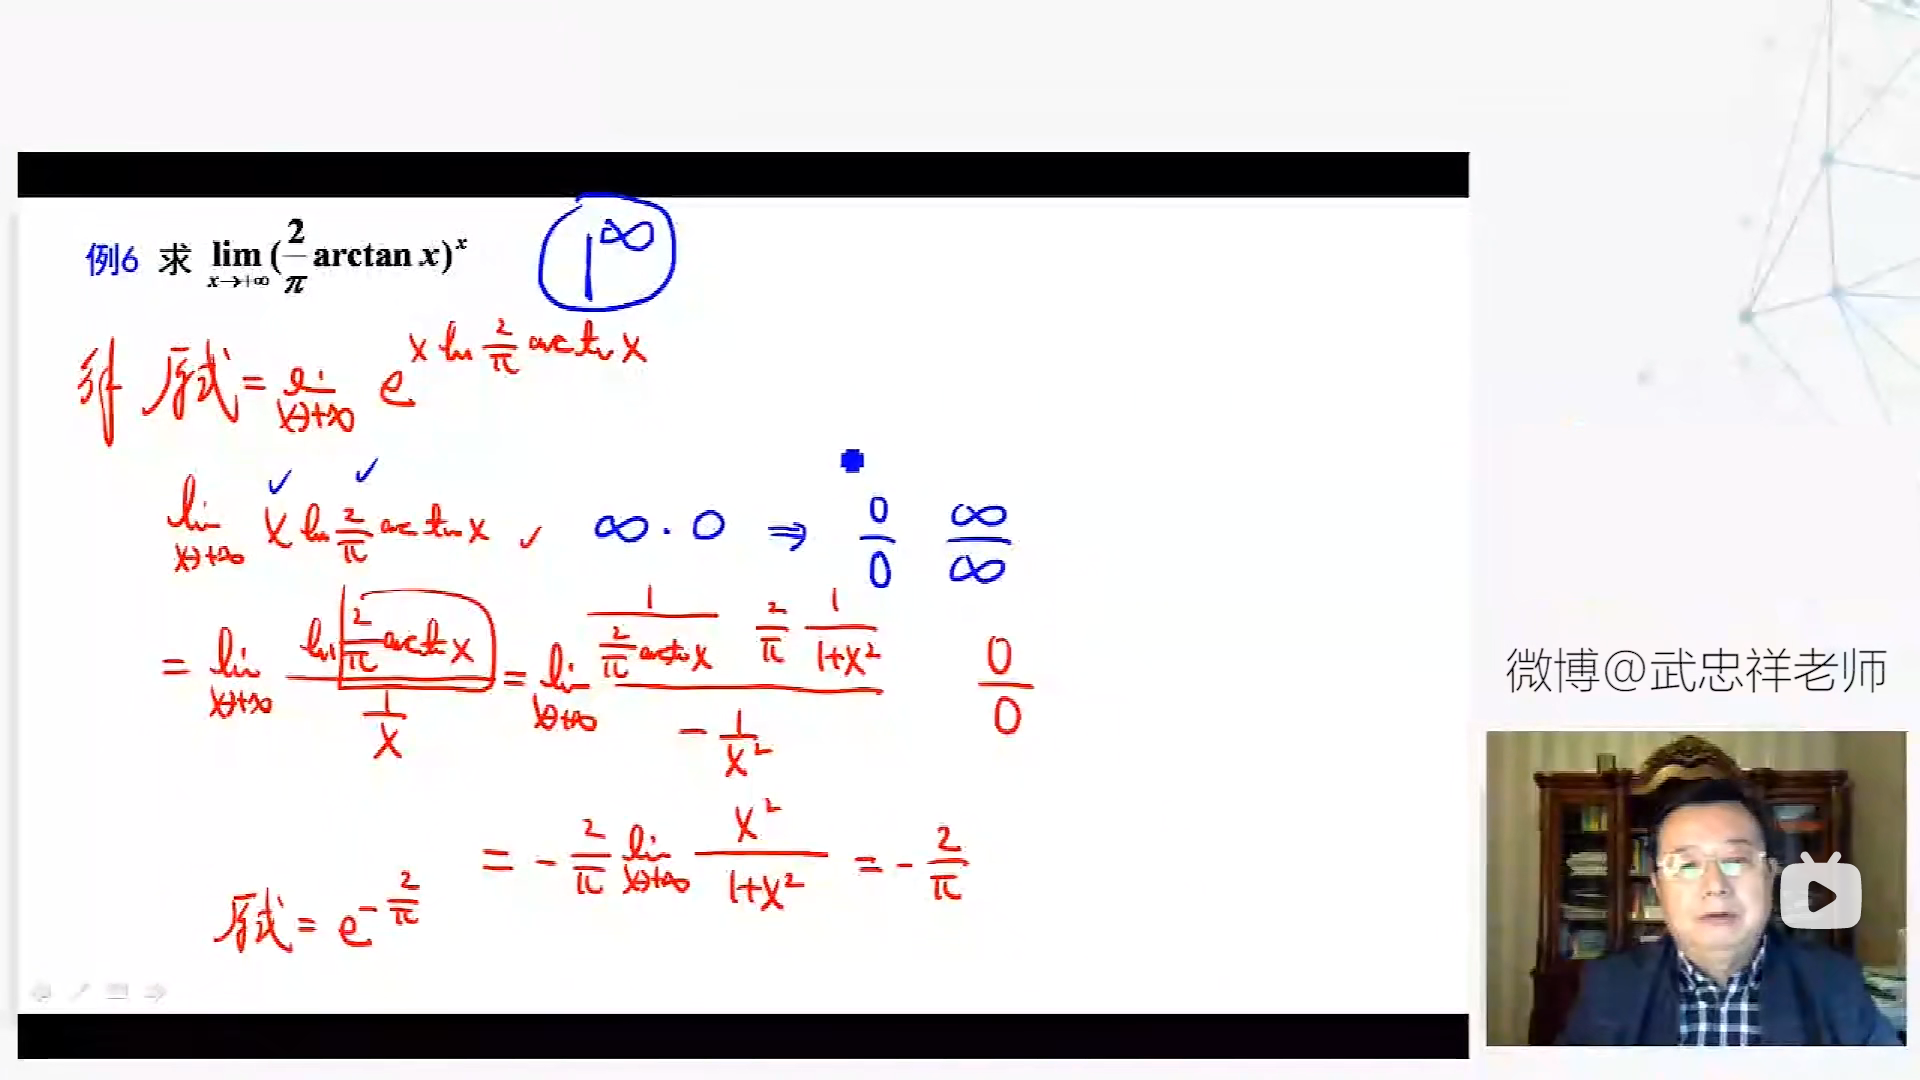 例6 求 lim x→+∞ (2/π arctan x)^x 1^∞
解 原式 = lim x→+∞ e^(x ln 2/π arctan x)
lim x→+∞ x ln 2/π arctan x , ∞·0 ⇒ 0/0 ∞/∞
= lim x→+∞ (ln 2/π arctan x)/(1/x) = lim x→+∞ (1/(2/π arctan x) 2/π 1/(1+x²))/(-1/x²) 0/0
= -2/π lim x→+∞ x²/(1+x²) = -2/π
原式 = e^(-2/π)
微博@武忠祥老师